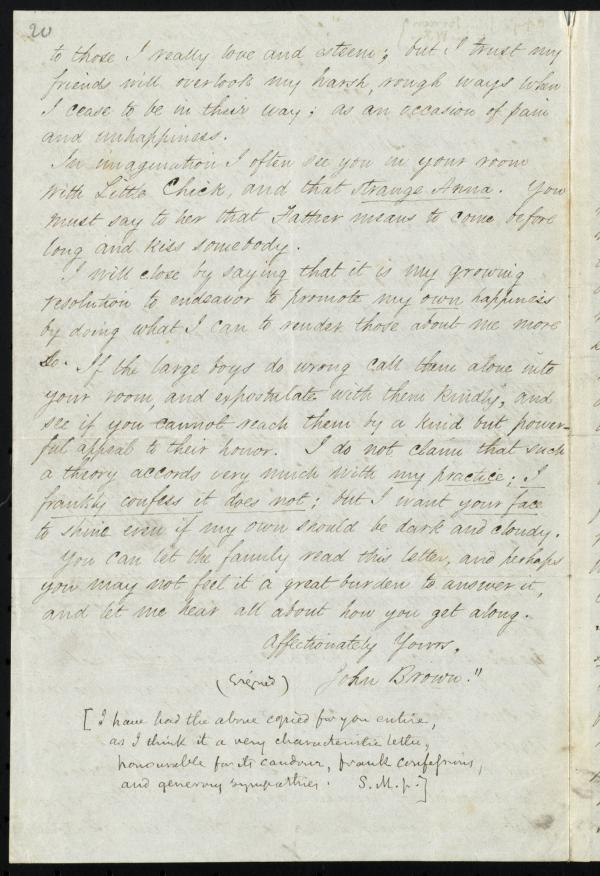 20
to those I really love and esteem; but I trust my
friends will overlook my harsh, rough ways when
I cease to be in their way; as an occasion of pain
and unhappiness.
In imagination I often see you in your room
with Little Chick, and that strange Anna. You
must say to her that Father means to come before
long and kiss somebody.
I will close by saying that it is my growing
resolution to endeavor to promote my own happiness
by doing what I can to render those about me more
so. If the large boys do wrong call them alone into
your room, and expostulate with them kindly, and
see if you cannot reach them by a kind but power-
ful appeal to their honor. I do not claim that such
a theory accords very much with my practice; I
frankly confess it does not; but I want your face
to shine even if my own should be dark and cloudy.
You can let the family read this letter, and perhaps
you may not feel it a great burden to answer it,
and let me hear all about how you get along.
Affectionately Yours,
(signed) John Brown."
[I have had the above copied for you entire,
as I think it a very characteristic letter,
honourable for its candour, frank confessions,
and generous sympathies. S. M. jr.]